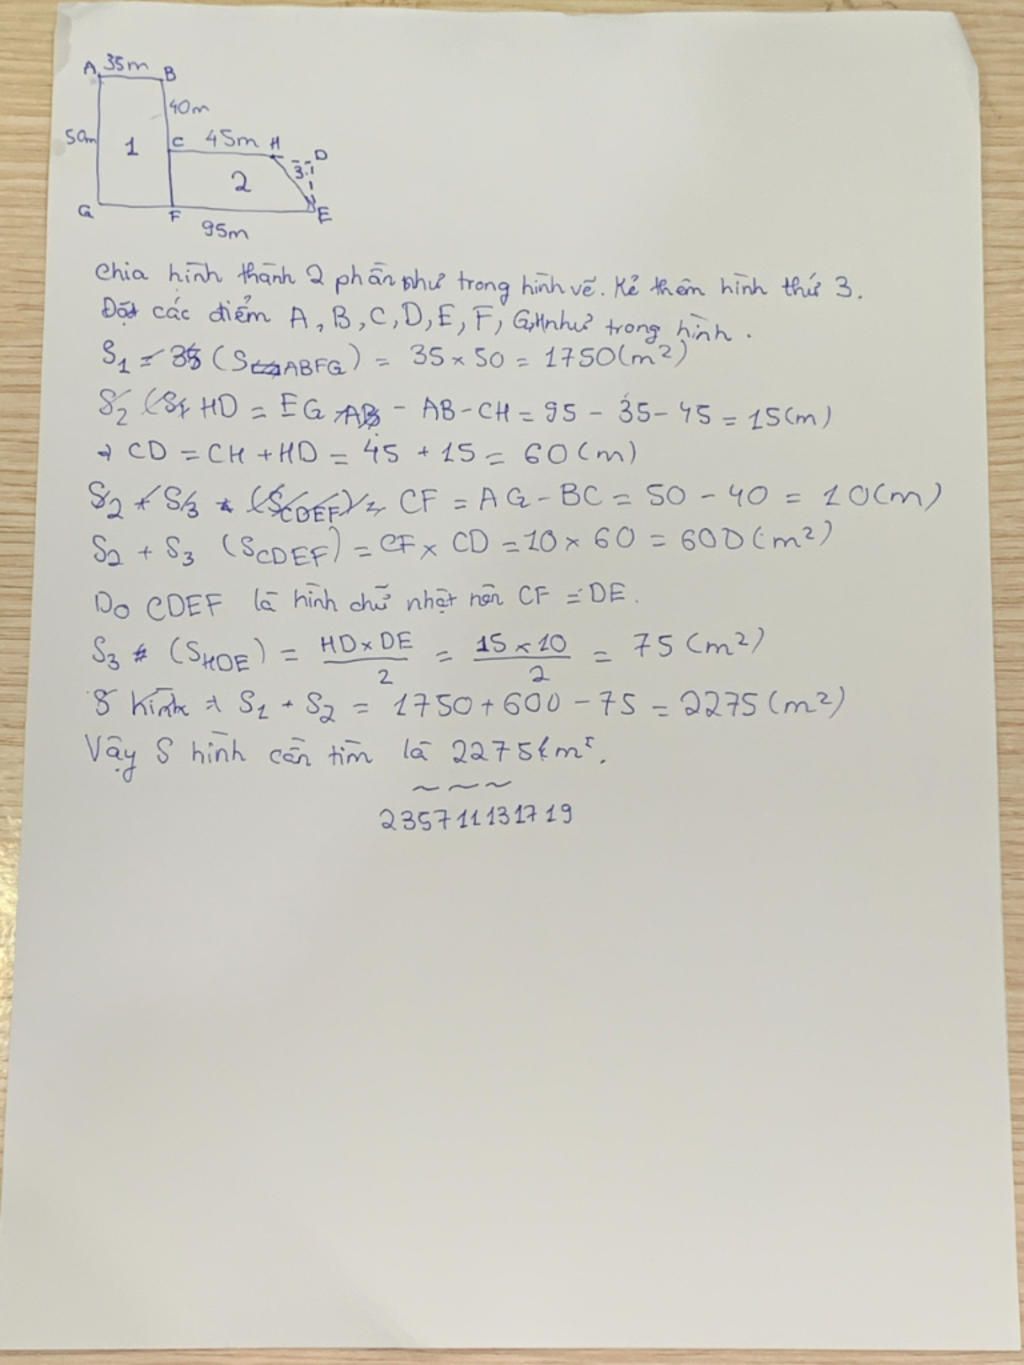 A 35m B
40m
50m 1 C 45m H
3 D
2
G F E
95m
Chia hình thành 2 phần như trong hình vẽ. Kẻ thêm hình thứ 3.
Đặt các điểm A, B, C, D, E, F, G, H như trong hình.
S1 = (S ABFG) = 35 × 50 = 1750 (m²)
HD = EG - AB - CH = 95 - 35 - 45 = 15 (m)
→ CD = CH + HD = 45 + 15 = 60 (m)
CF = AG - BC = 50 - 40 = 10 (m)
S2 + S3 (SCDEF) = CF × CD = 10 × 60 = 600 (m²)
Do CDEF là hình chữ nhật nên CF = DE.
S3 (SHDE) = HD × DE / 2 = 15 × 10 / 2 = 75 (m²)
S hình = S1 + S2 = 1750 + 600 - 75 = 2275 (m²)
Vậy S hình cần tìm là 2275 m².
~ ~ ~
235711131719